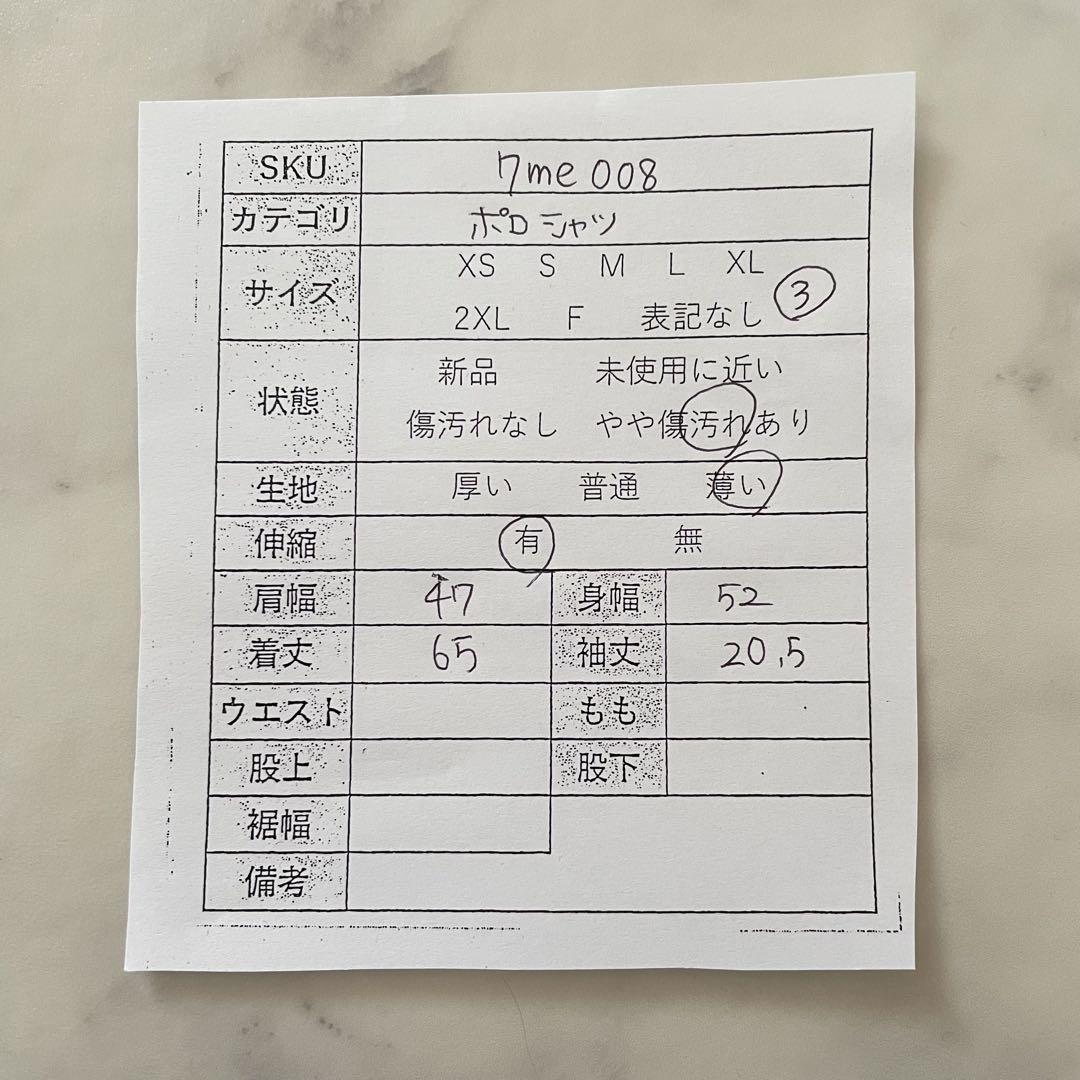 SKU 7me008
カテゴリ ポロシャツ
サイズ XS S M L XL
2XL F 表記なし 3
状態 新品 未使用に近い
傷汚れなし やや傷汚れあり
生地 厚い 普通 薄い
伸縮 有 無
肩幅 47 身幅 52
着丈 65 袖丈 20.5
ウエスト もも
股上 股下
裾幅
備考